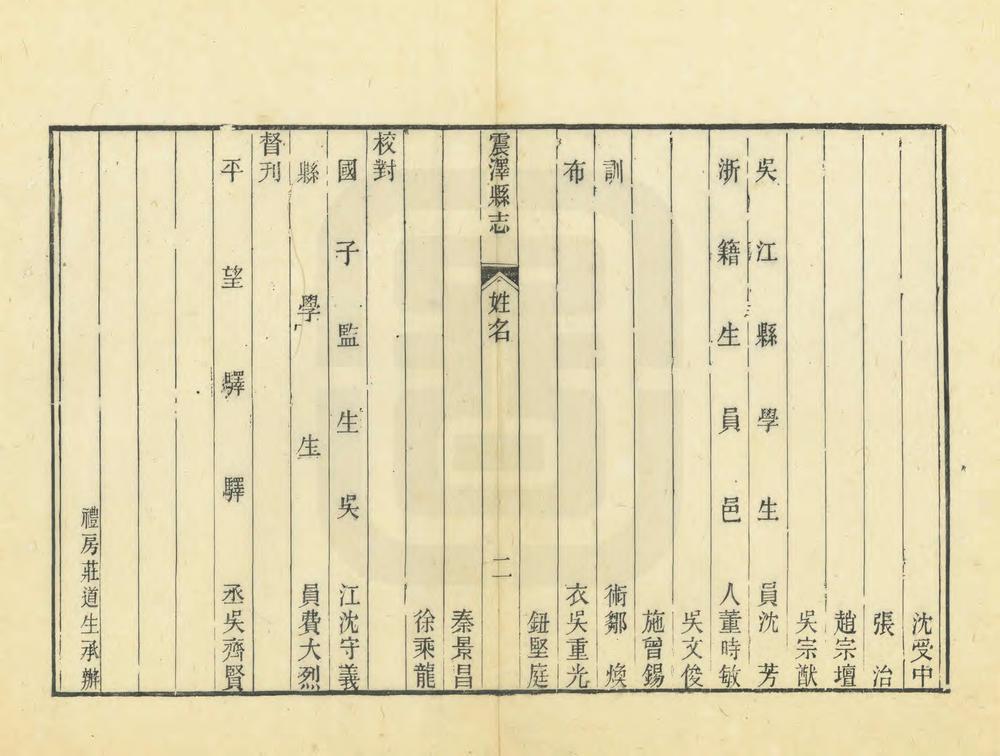 沈受中
張治
趙宗壇
吳宗猷
吳江縣學生員沈芳
浙籍生員邑人董時敏
吳文俊
施曾錫
訓術鄒煥
布衣吳重光
鈕堅庭
震澤縣志 姓名 二
秦景昌
徐乘龍
校對
國子監生吳江沈守義
縣學生員費大烈
督刊
平望驛驛丞吳齊賢
禮房莊道生承辦